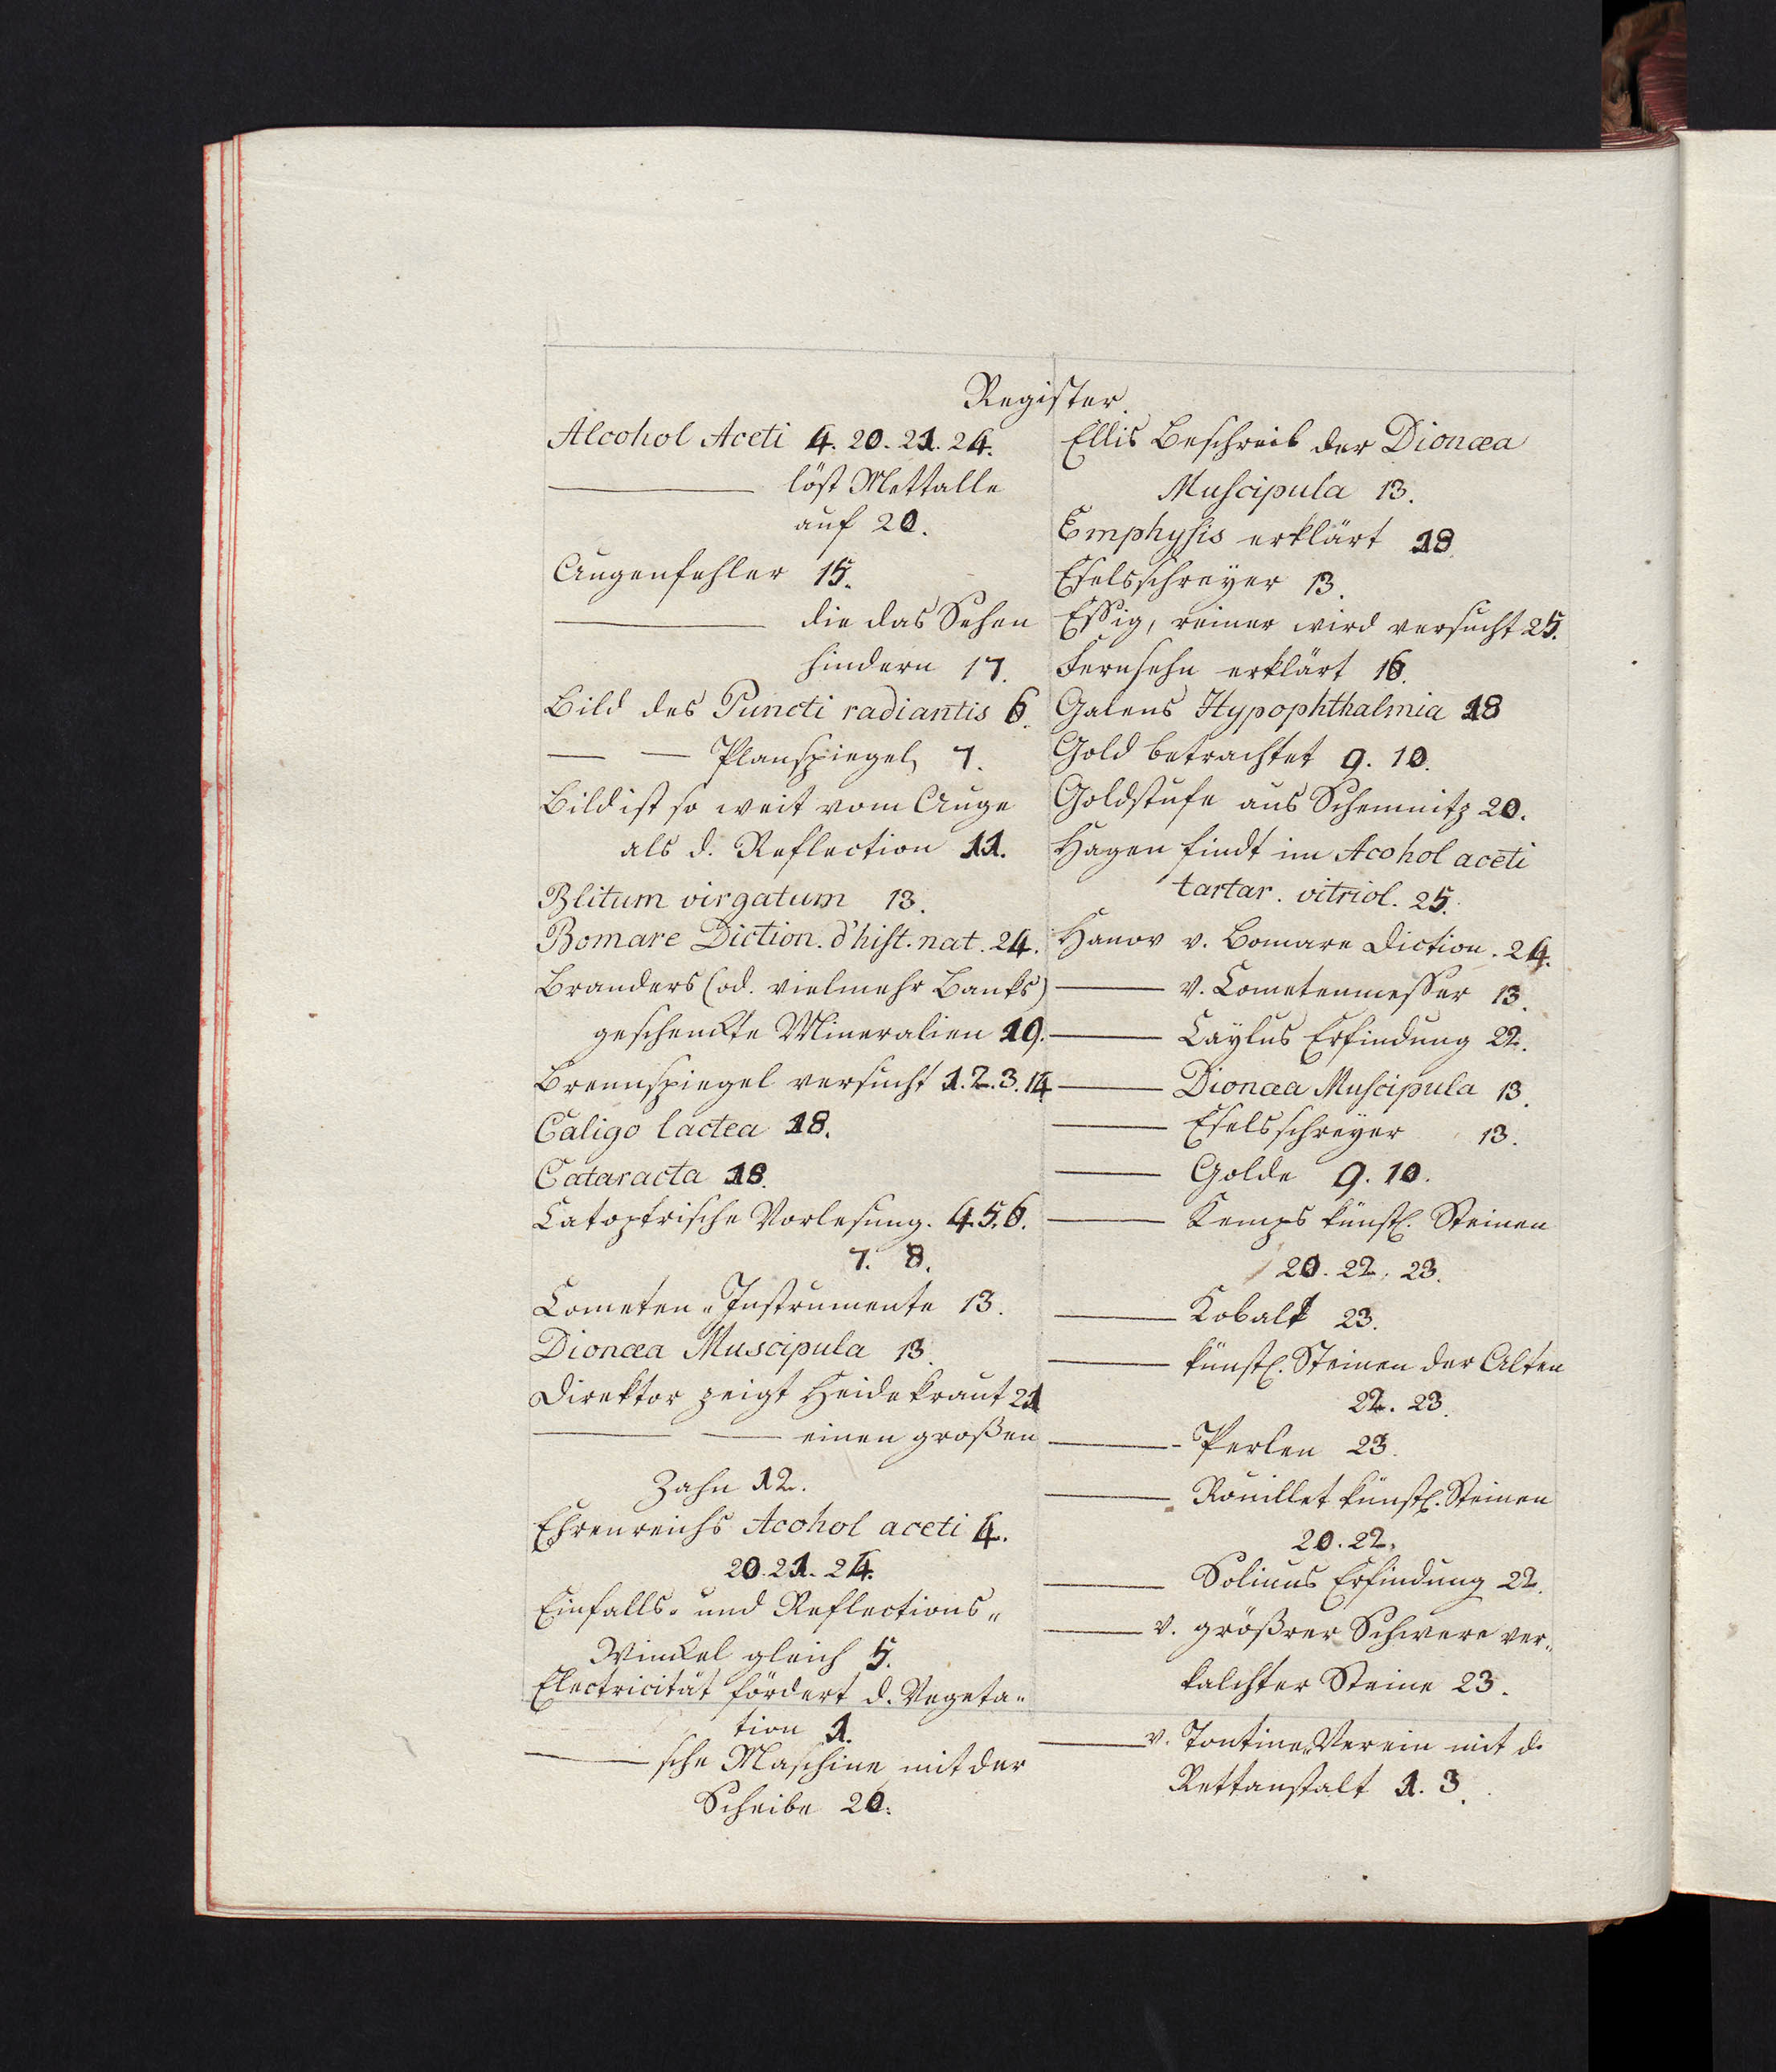 Register.
Alcohol Aceti 4. 20. 21. 24.
——— löst Mettalle
auf 20.
Augenfehler 15.
——— die das Sehen
hindern 17.
Bild des Puncti radiantis 6.
— — Planspiegel 7.
Bild ist so weit vom Auge
als d. Reflection 11.
Blitum virgatum 13.
Bomare Diction. d'hist. nat. 24.
Branders (od. vielmehr Banks)
geschenckte Mineralien 19.
Brennspiegel versucht 1. 2. 3. 14
Caligo lactea 18.
Cataracta 18.
Catoptrische Vorlesung. 4. 5. 6.
7. 8.
Cometen-Instrumente 13.
Dionæa Muscipula 13.
Direktor zeigt Heidekraut 21
——— — einen großen
Zahn 12.
Ehrenreichs Acohol aceti 4.
20. 21. 24.
Einfalls- und Reflections-
Winckel gleich 5.
Electricität fördert d. Vegeta-
tion 1.
——— sche Maschine mit der
Scheibe 20.
Ellis Beschreib der Dionæa
Muscipula 13.
Emphysis erklärt 18
Eselsschreyer 13.
Essig, reiner wird versucht 25.
Fernsehn erklärt 16.
Galens Hypophthalmia 18
Gold betrachtet 9. 10.
Goldstufe aus Schemnitz 20.
Hagen findt im Acohol aceti
tartar. vitriol. 25.
Hanov v. Bomare Diction. 24.
——— v. Cometenmesser 13.
——— Caylus Erfindung 22.
——— Dionæa Muscipula 13.
——— Eselsschreyer 13.
——— Golde 9. 10.
——— Kemps künstl. Steinen
20. 22. 23.
——— Kobalt 23.
——— künstl. Steinen der Alten
22. 23.
——— Perlen 23.
——— Rouillet künstl. Steinen
20. 22.
——— Solinus Erfindung 22.
——— v. größrer Schwere ver-
kalchter Steine 23.
——— v. Tontine-Verein mit d.
Rettanstalt 1. 3.